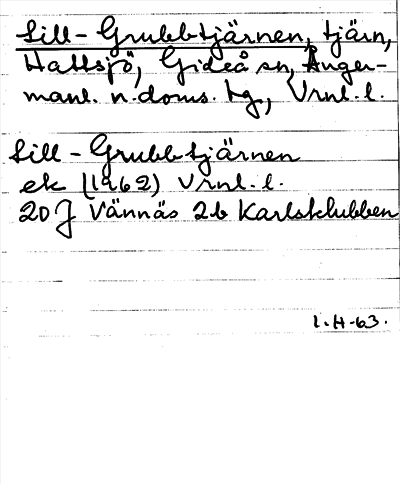 Lill-Grubbtjärnen, tjärn,
Hattsjö, Gideå sn, Ånger-
manl. n. doms. tg, Vrnl. l.
Lill-Grubbtjärnen
ek (1962) Vrnl. l.
20J Vännäs 2b Karlsklubben
I.H-63.